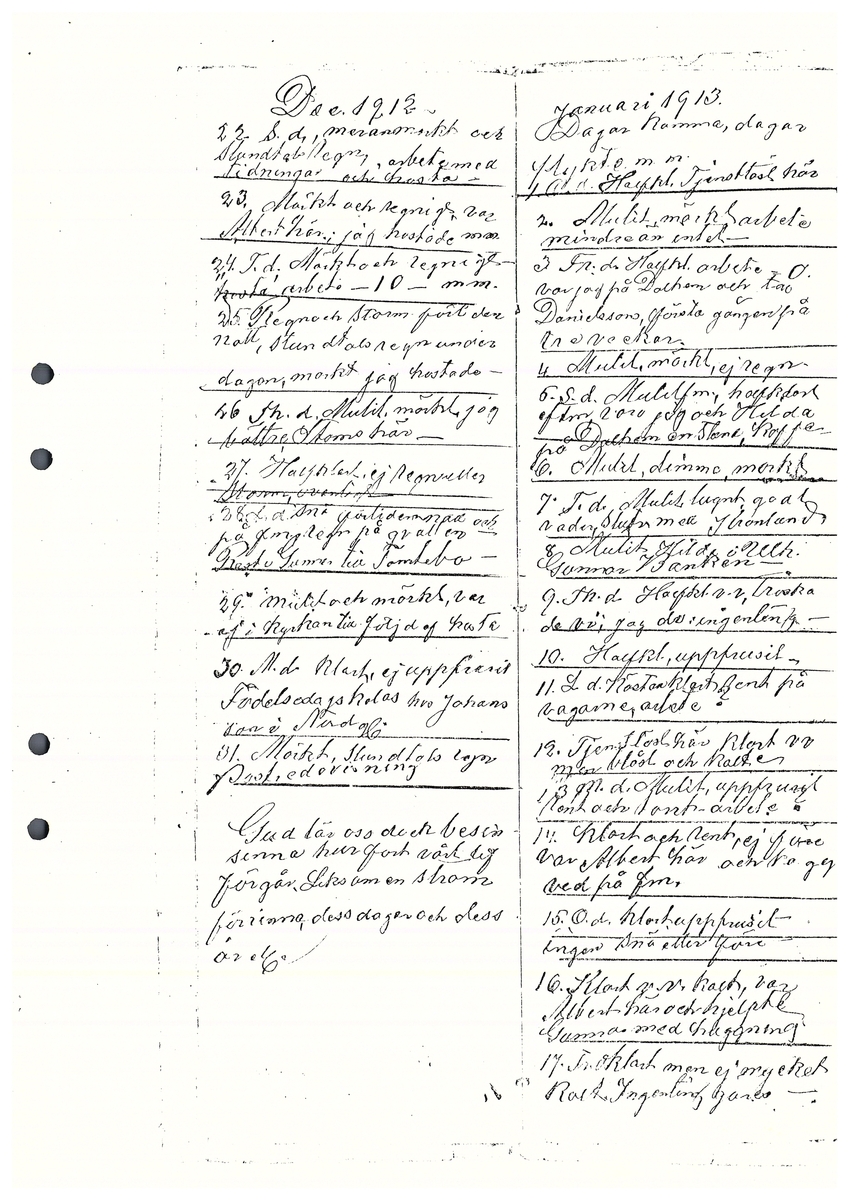 Dec. 1912
22. S. d., meranmörkt och
stundtals regn, arbete med
tidningar och hosta –
23. Mörkt och regnigt, var
Albert här, jag hostade mm
24. T. d. Mörkt och regnigt –
"hosta" arbete – 10 – mm.
25. Regn och Storm förtiden
natt, stundtals regn under
dagen, mörkt jag hostade –
26 Th. d. Mulit, mörkt, jag
bättre, Stoms här –
27. Halfklart, ej regn eller
Storm,
28. L. d. Snö förlidennatt och
på fm, regn på qvällen –
Tomtebo –
29. Mulit och mörkt, var
ej i kyrkan till följd af hosta
30. M. d. Klart, ej uppfrusit
Födelsedagskalas hos Johans
son i Nord
31. Mörkt, stundtals regn
Post, redovisning
Gud lär oss dock besin
sinna hur fort vårt lif
förgår. Liksom en ström
försvinna, dess dagar och dess
år etc.
Januari 1913.
Dagar komma, dagar
flykte m. m.
1 O. d. Halfkl. Tjenstlöst här
2. Mulit, mörkt arbete
mindre än intet –
3 Fr. d. Halfkl. arbete – 0.
var jag på Dalhem och
Danielssons, första gången på
tre veckor.
4. Mulit, mörkt, ej regn.
5. S. d. Mulit fm, halfklart
eftm voro jag och Hilda
på Dalhem en stund, Kaffe –
6. Mulit, dimma, mörkt
7. T. d. Mulit lugnt, godt
väder, med Grönland
8. Mulit, Hilda i Ulh.
Gunnar Banken –
9. Th. d Halfkl v. v,
de vi; jag do: ingenting –
10. Halfkl, uppfrusit –
11. L. d. Nästan Klart, Rent på
vägarne, arbete?
12. Tjenstlöst här, Klart vv
men blåst och kallt
13 M. d. Mulit, uppfrusit
rent och tort – arbete?
14. Klart och rent, ej före
var Albert här och högg
ved på fm.
15. O. d. Klart uppfrusit –
ingen snö eller före –
16. Klart v. v. kallt, var
Albert här och hjelpte
Gunnar med huggning
17. Fr. d klart men ej mycket
Kallt. Ingenting göres –